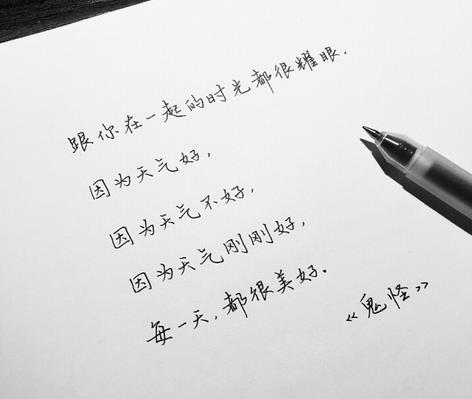 跟你在一起的时光都很耀眼.
因为天气好,
因为天气不好,
因为天气刚刚好,
每一天,都很美好.
《鬼怪》